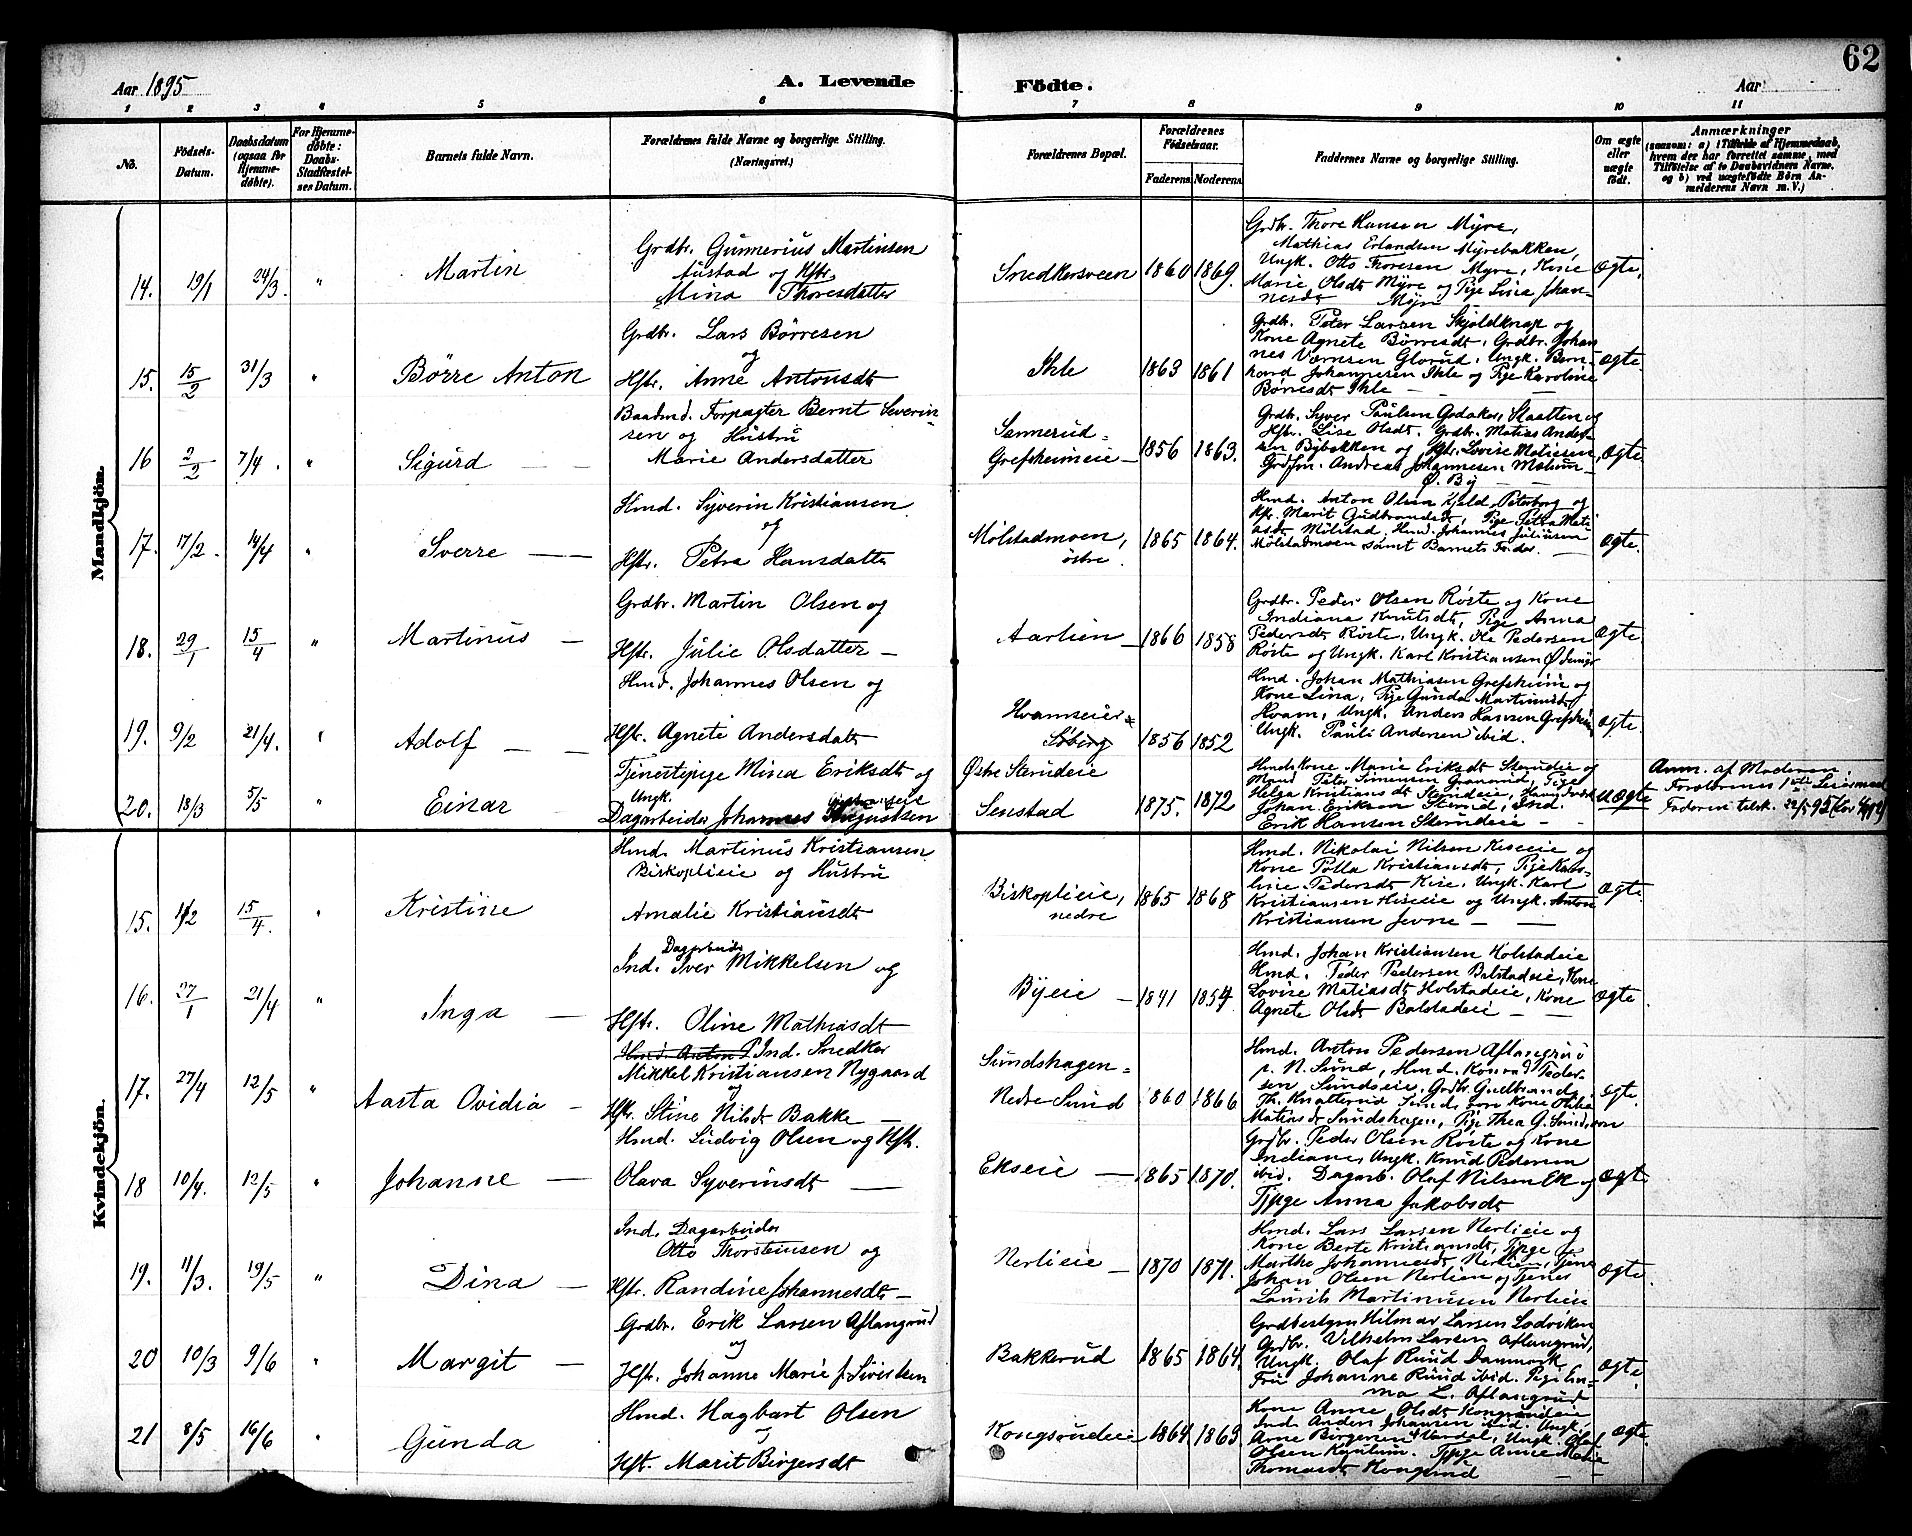 62
Aar 1895
A. Levende
Födte.
Aar
1 2 3 4 5 6 7 8 9 10 11
No.
Födsels-Datum.
Daabsdatum (ogsaa for Hjemmedöbte).
For Hjemmedöbte: Daabs-Stadfæstelses Datum.
Barnets fulde Navn.
Forældrenes fulde Navne og borgerlige Stilling. (Næringsvei.)
Forældrenes Bopæl.
Forældrenes Födselsaar.
Faderens Moderens
Faddernes Navne og borgerlige Stilling.
Om ægte eller uægte födt.
Anmærkninger
(saasom: a) i Tilfælde af Hjemmedaab,
hvem der har forrettet samme, med
Tilföielse af to Daabsvidners Navne.
og b) ved uægtefödte Börn An-
melderens Navn m. V.)
Mandkjön.
14. 19/1 24/3. " Martin
Grdbr. Gunnerius Martinsen
Austad og Hstr.
Mina Thoresdatter
Snedkersveen 1860 1869.
Grdb. Thore Hansen Myre,
Mathias Erlandsen Myrebakken,
Ungk. Otto Thoresen Myre, Kone
Marie Olsdt Myre og Pige Lina Johan-
nesdt Myr
Ægte.
15. 15/2 31/3 " Börre Anton
Grdbr. Lars Börresen
og
Hstr. Anne Antonsdt
Ihle 1863 1861
Grdb. Peter Larsen Skjoldknap og
Kone Agnete Börresdt. Grdbr. Johan
nes Værnsen Glorud, Ungk. Bern-
hard Johannesen Ihle og Pige Karoline
Börresdt Ihle —
Ægte.
16 2/2 7/4. " Sigurd — —
Baadmd. Forpagter Bernt Severin-
sen og Hustru
Marie Andersdatter
Sennerud-
Grefsheimeie — 1856 1863.
Grdbr. Syver Paulsen Godaker, Staatten og
Hstr. Lise Olsdt. Grdbr. Matias Ander-
sen Bybakken og Hstr. Lovise Matiesen,
Andreas Johannesen
Ø. By —
Ægte.
17. 17/2. 14/4 " Sverre — —
Hmd. Syverin Kristiansen
og
Hstr. Petra Hansdatte
Mølstadmoen,
östre. 1865 1864.
Hmd. Anton Olsen Kjeld Peterborg og
Hstr. Marit Gudbrandsdt, Pige Petra Mati-
asdt Mölstad, Hmd. Johannes Juliusen
Mölstadmoen samt Barnets Fader. —
Ægte.
18. 29/1 15/4 " Martinus —
Grdbr. Martin Olsen og
Hstr. Julie Olsdatter —
Aarlien — 1866 1858
Grdbr. Peder Olsen Röste og Kone
Indiana Knutsdt, Pige Anna
Pedersdt Röste, Ungk. Ole Pedersen
Röste og Ungk. Karl Kristiansen
Ægte.
19. 9/2 21/4. " Adolf — —
Hmd. Johannes Olsen og
Hstr. Agnete Andersdatt
Hvamseier
Söberg 1856 1852
Hmd. Johan Mathiasen Grefsheim og
Kone Lina, Pige Gunda Martinusdt
Hvam, Ungk. Anders Hansen Grefsheim
Ungk. Pauli Andersen ibid.
Ægte.
20. 18/3 5/5 " Einar —
Tjenestepige Mina Eriksdt og
Ungk.
Dagarbeider Johannes Augustsen
Østre Sterudeie
Senstad 1875. 1872
Hmds Kone Marie Eriksdt Sterudeie og
Mand Peter Simensen Pige
Helga Kristiansdt Sterudeie,
Johan Eriksen Sterud, Ind.
Erik Hansen Sterudeie —
Uægte
Anm. af Moderen
Forældrenes 1ste Leiermaal
Faderen tilsk. 22/5 95
Kvindekjön.
15. 1/2 15/4. " Kristine
Hmd. Martinus Kristiansen
Biskoplieie og Hustru
Amalie Kristiansdt
Biskoplieie,
nedre 1865 1868
Hmd. Nikolai Nilsen Kiseeie og
Kone Polla Kristiansdt, Pige Karo-
line Pedersdt Kise, Ungk. Karl
Kristiansen Kiseeie og Ungk. Anton
Kristiansen Jevne — —
Ægte.
16. 27/1 21/4 " Inga —
Dagarbeider
Ind. Iver Mikkelsen og
Hstr. Oline Mathiasdt
Byeie — 1841 1854
Hmd. Johan Kristiansen Holstadeie
Hmd. Peder Pedersen Balstadeie, Kone
Lovise Matiasdt Holstadeie, Kone
Agnete Olsdt Balstadeie —
Ægte
17. 27/4 12/5 " Aasta Ovidia —
Hmd. Anton P. Ind. Snedker
Mikkel Kristiansen Nygaard
og
Hstr. Stine Nilsdt Bakke —
Sundshagen-
Nedre Sund 1860 1866
Hmd. Anton Pedersen Aflangrud
p. N. Sund, Hmd. Konrad Peder-
sen Sundseie, Grdbr. Gudbrand
Th. Knatterud Sund, Kone
Matiasdt Sundshagen, Pige Thea G. Sund
Ægte.
18 10/4. 12/5 " Johanne —
Hmd. Ludvig Olsen og Hstr.
Olava Syverinsdt —
Ekseie — 1865 1870.
Grdbr. Peder Olsen Röste og Kone
Indiane, Ungk. Knud Pedersen
ibid. Dagarb. Olaf Nilsen Ek og
Tjpge Anna Jakobsdt
Ægte
19. 11/3. 19/5 " Dina —
Ind. Dagarbeider
Otto Thorsteinsen og
Hstr. Randine Johannesdt —
Nerlieie — 1870 1871.
Hmd. Lars Larsen Nerlieie og
Kone Berte Kristiansdt, Tjpge
Marthe Johannesdt Nerlien, Tjener
Johan Olsen Nerlien og Tjener
Laurits Martinusen Nerlien
Ægte.
20 10/3 9/6 " Margit —
Grdbr. Erik Larsen Aflangrud
og
Hstr. Johanne Marie f. Sivertsen
Bakkerud 1865 1864.
Grdbestyrer Hilmar Larsen Lodviken
Grdbr. Vilhelm Larsen Aflangrud,
Ungk. Olaf Ruud Danmark
Fru Johanne Ruud ibid. Pige Em-
ma L. Aflangrud
Ægte.
21 8/5 16/6 " Gunda
Hmd. Hagbart Olsen
og
Hst. Marit Birgersdt
Kongsrudeie 1864 1863
Kone Anne Olsdt Kongsrudeie
Ind. Anders Johansen ibid. Ungk.
Arne Birgersen Vardal, Ungk. Olaf
Olsen Tjpge Anne Marie
Thomasdt Kongsrud —
Ægte.